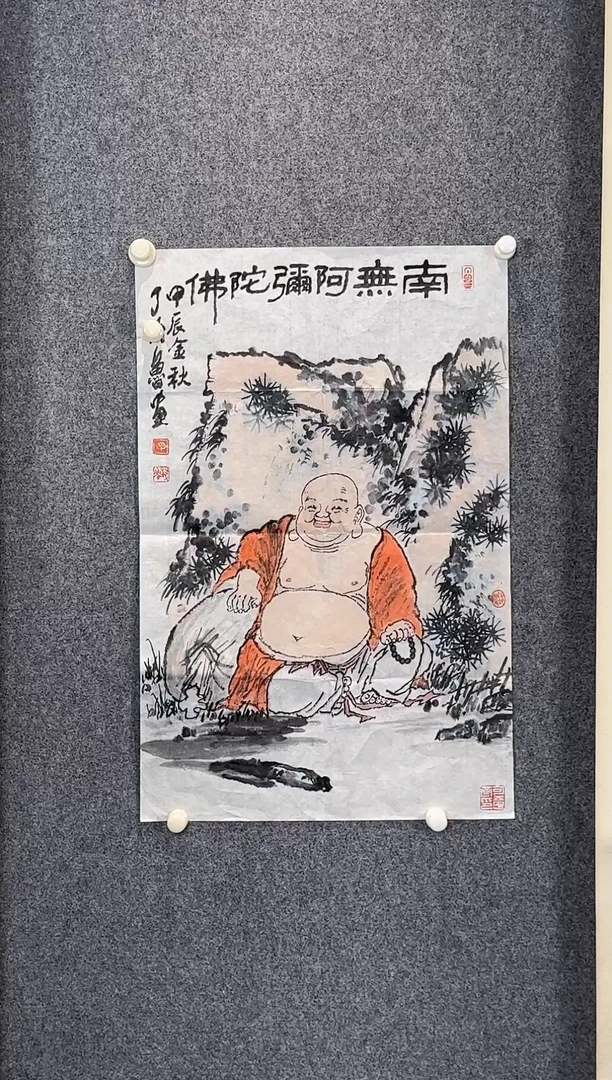 南無阿彌陀佛
甲辰金秋
魯畫